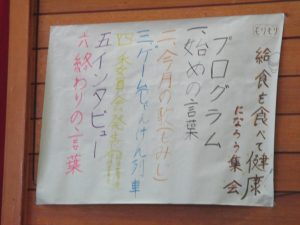 もりもり
給食を食べて健康
になろう集会
プログラム
一、始めの言葉
二、今月の
三、ゲームじゃんけん列車
四、委員会発表
五、インタビュー
六、終わりの言葉